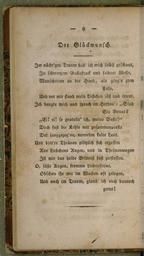 — 6 —
Der Glückwunsch.
Im nächt'gen Traum hab' ich mich selbst geschaut,
In schwarzem Galafrack und seidner Weste,
Manschetten an der Hand, als ging's zum
Feste,
Und vor mir stand mein Liebchen süß und traut.
Ich beugte mich und sagte: „Sind
Sie Braut?
Ei! ei! so gratulir' ich, meine Beste!"
Doch fast die Kehle mir zusammenpreßte
Der langgezogne, vornehm kalte Laut.
Und bittre Thränen plötzlich sich ergossen
Aus Liebchens Augen, und in Thränenwogen
Ist mir das holde Bildniß fast zerflossen.
O, süße Augen, fromme Liebessterne,
Obschon ihr mir im Wachen oft gelogen,
Und auch im Traum, glaub' ich euch dennoch
gerne!